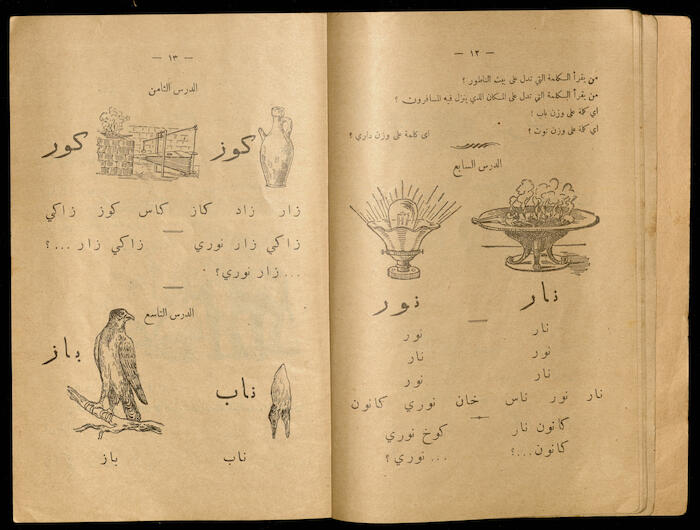 — ١٢ —
من يقرأ الكلمة التي تدل على بيت الناطور ؟
من يقرأ الكلمة التي تدل على المكان الذي ينزل فيه المسافرون ؟
اي كلمة على وزن باب ؟
اي كلمة على وزن توت ؟ اي كلمة على وزن داري ؟
الدرس السابع
نار نور
نار نور
نور نار
نار نور
نار نور ناس خان نوري كانون
كانون نار كوخ نوري
كانون...؟ ... نوري ؟
— ١٣ —
الدرس الثامن
كوز كور
زار زاد كاز كاس كوز زاكي
زاكي زار نوري زاكي زار ...؟
... زار نوري ؟
الدرس التاسع
ناب باز
ناب باز